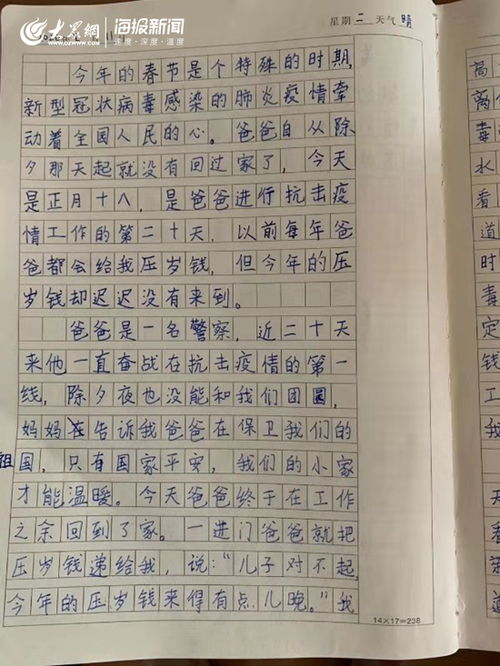 大众网
www.dzwww.com
海报新闻
速度·深度·温度
星期二 天气 晴
今年的春节是个特殊的时期,
新型冠状病毒感染的肺炎疫情牵
动着全国人民的心。爸爸自从除
夕那天起就没有回过家了,今天
是正月十八,是爸爸进行抗击疫
情工作的第二十天,以前每年爸
爸都会给我压岁钱,但今年的压
岁钱却迟迟没有来到。
爸爸是一名警察,近二十天
来他一直奋战在抗击疫情的第一
线,除夕夜也没能和我们团圆,
妈妈告诉我爸爸在保卫我们的
祖国,只有国家平安,我们的小家
才能温暖。今天爸爸终于在工作
之余回到了家。一进门爸爸就把
压岁钱递给我,说:“儿子对不起,
今年的压岁钱来得有点儿晚。”我
14×17=238
高
离
毒
水
看
道
时
毒
定
钱
天